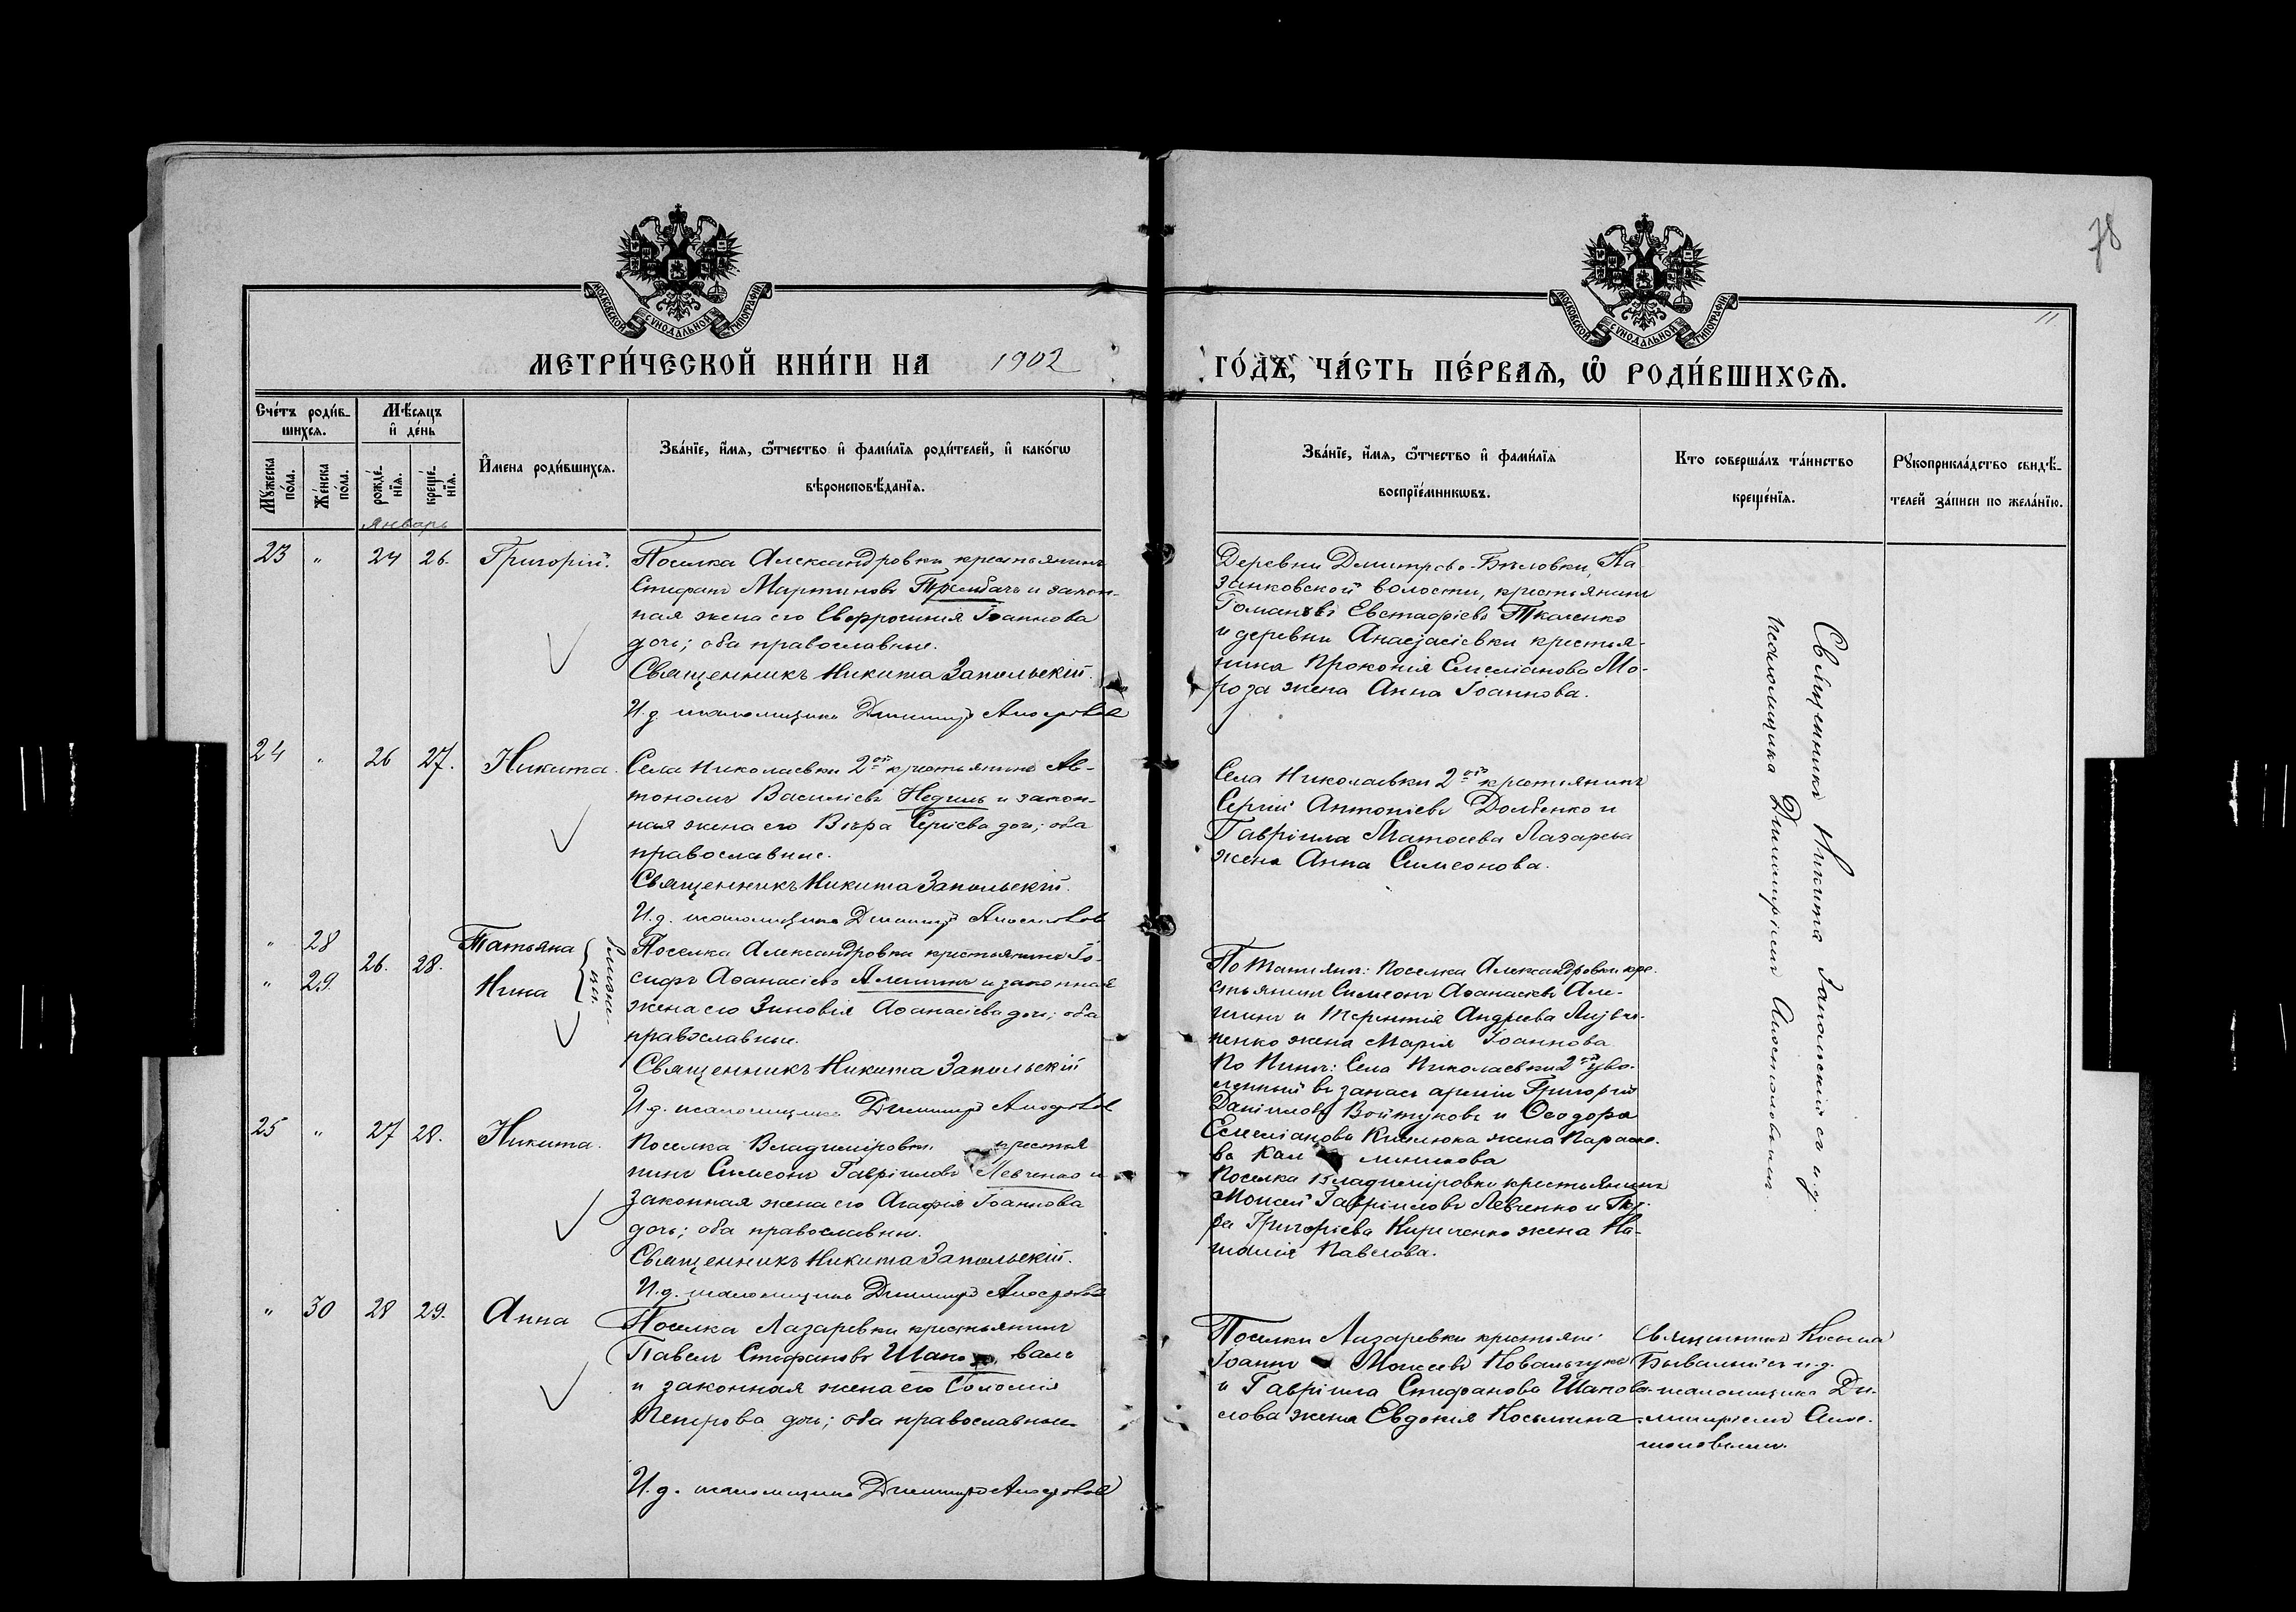 78
11
МОСКОВСКОЙ СѴНОДАЛЬНОЙ ТИПОГРАФІИ
МОСКОВСКОЙ СѴНОДАЛЬНОЙ ТИПОГРАФІИ
МЕТРИ́ЧЕСКОЙ КНИ́ГИ НА 1902
ГО́ДЪ, ЧА́СТЬ ПЕ́РВАѦ, Ѽ РОДИ́ВШИХСѦ.
Сче́тъ роди́в-
шихсѧ.
Мꙋ́жеска по́ла.
Же́нска по́ла.
Мѣ́сѧцъ
и҆ де́нь
рожде́нїѧ.
креще́нїѧ.
Январь
И҆мена роди́вшихсѧ.
Зва́нїе, и҆́мѧ, ѻ҆́тчество и҆ фами́лїѧ роди́телей, и҆ како́гѡ
вѣроисповѣ́данїѧ.
Зва́нїе, и҆́мѧ, ѻ҆́тчество и҆ фами́лїѧ
воспрїе́мникѡвъ.
Кто соверша́лъ та́инство
креще́нїѧ.
Рꙋкоприкла́дство свидѣ́-
телей за́писи по жела́нїю.
23 " 24 26. Григорій.
Поселка Александровки крестьянинъ
Стефанъ Мартиновъ Трембачъ и закон-
ная жена его Евфросинія Іоаннова
дочь; оба православные.
Священникъ Никита Запольскій.
И.д. псаломщика Димитрій
Деревни Димитрово-Бѣловки, Ка
занковской волости, крестьянинъ
Романъ Евстафіевъ Ткаченко
и деревни Анастасіевки крестья-
нина Прокопія Емеліанова Мо-
роза жена Анна Іоаннова.
24 " 26 27. Никита.
Села Николаевки 2ой крестьянинъ Ав-
тономъ Василіевъ Недиль и закон-
ная жена его Вѣра Сергіева дочь; оба
православные.
Священникъ Никита Запольскій.
И.д. псаломщика Димитрій
Села Николаевки 2ой крестьянинъ
Сергій Антоніевъ Долбенко и
Гавріила Матѳеева Лазарева
жена Анна Симеонова.
" 28 Татьяна
" 29. Нина
26. 28.
близне-
цы.
Поселка Александровки крестьянинъ Іо-
сифъ Аѳанасіевъ Алешинъ и законная
жена его Зиновія Аѳанасіева дочь; оба
православные.
Священникъ Никита Запольскій
И.д. псаломщика Димитрій
По Татіянѣ: поселка Александровки кре-
стьянинъ Симеонъ Аѳанасіевъ Але-
шинъ и Терентія Андреева
ненко жена Марія Іоаннова.
По Нинѣ: Села Николаевки 2ой уво-
ленный въ запасъ арміи Григорій
Даніиловъ Войтуковъ и Ѳеодора
Емеліанова жена Параске-
ва
25 " 27 28. Никита.
Поселка Владиміровки крестья
нинъ Симеонъ Гавріиловъ Левченко и
законная жена его Агафія Іоаннова
дочь; оба православны.
Священникъ Никита Запольскій.
И.д. псаломщика Димитрій
Поселка Владиміровки крестьянинъ
Моисей Гавріиловъ Левченко и
Григоріева Кириченко жена На-
талія Павлова.
" 30 28 29. Анна
Поселка Лазаревки крестьянинъ
Павелъ Стефановъ Шапо валъ
и законная жена его Соломія
Петрова дочь; оба православные
И.д. псаломщика Димитрій
Поселки Лазаревки крестьяне:
Іоаннъ Моисеевъ Ковальчукъ
и Гавріила Стефанова Шапова-
лова жена Евдокія Косьмина.
Священникъ Косьма
Бывалькевич и.д.
псаломщика Ди-
митріемъ Апос-
толовымъ.
Священникъ Никита Запольскій съ и.д.
псаломщика Димитріемъ Апостоловымъ